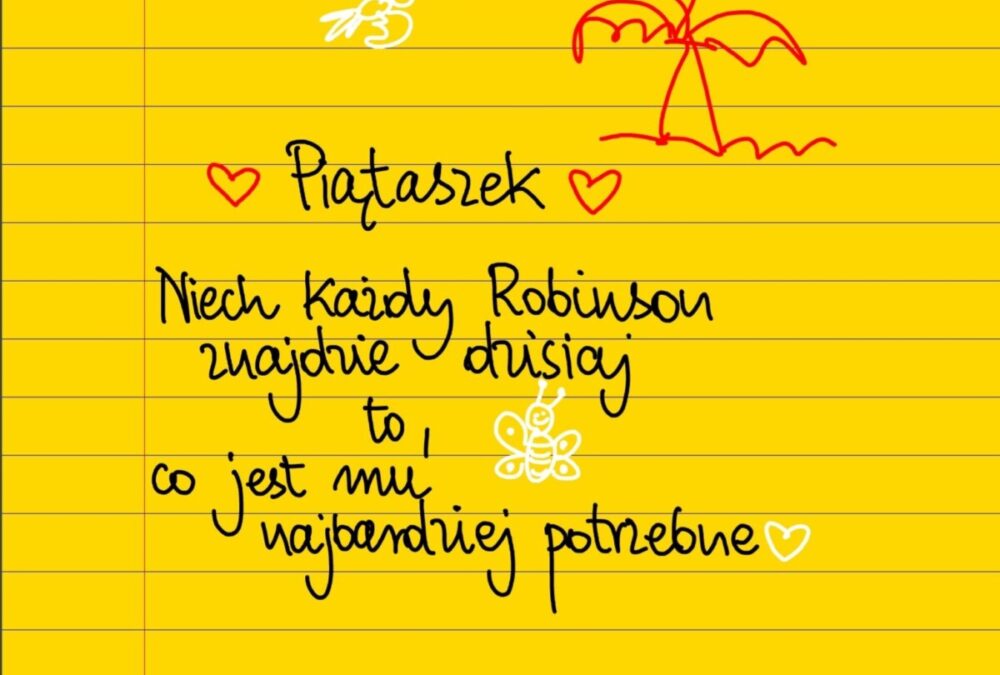 Piątaszek
Niech każdy Robinson
znajdzie dzisiaj
to,
co jest mu
najbardziej potrzebne